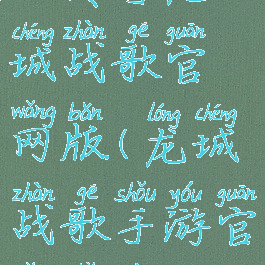 chéng zhàn gē guān
城战歌官
wǎng bǎn lóng chéng
网版(龙城
zhàn gē shǒu yóu guān
战歌手游官